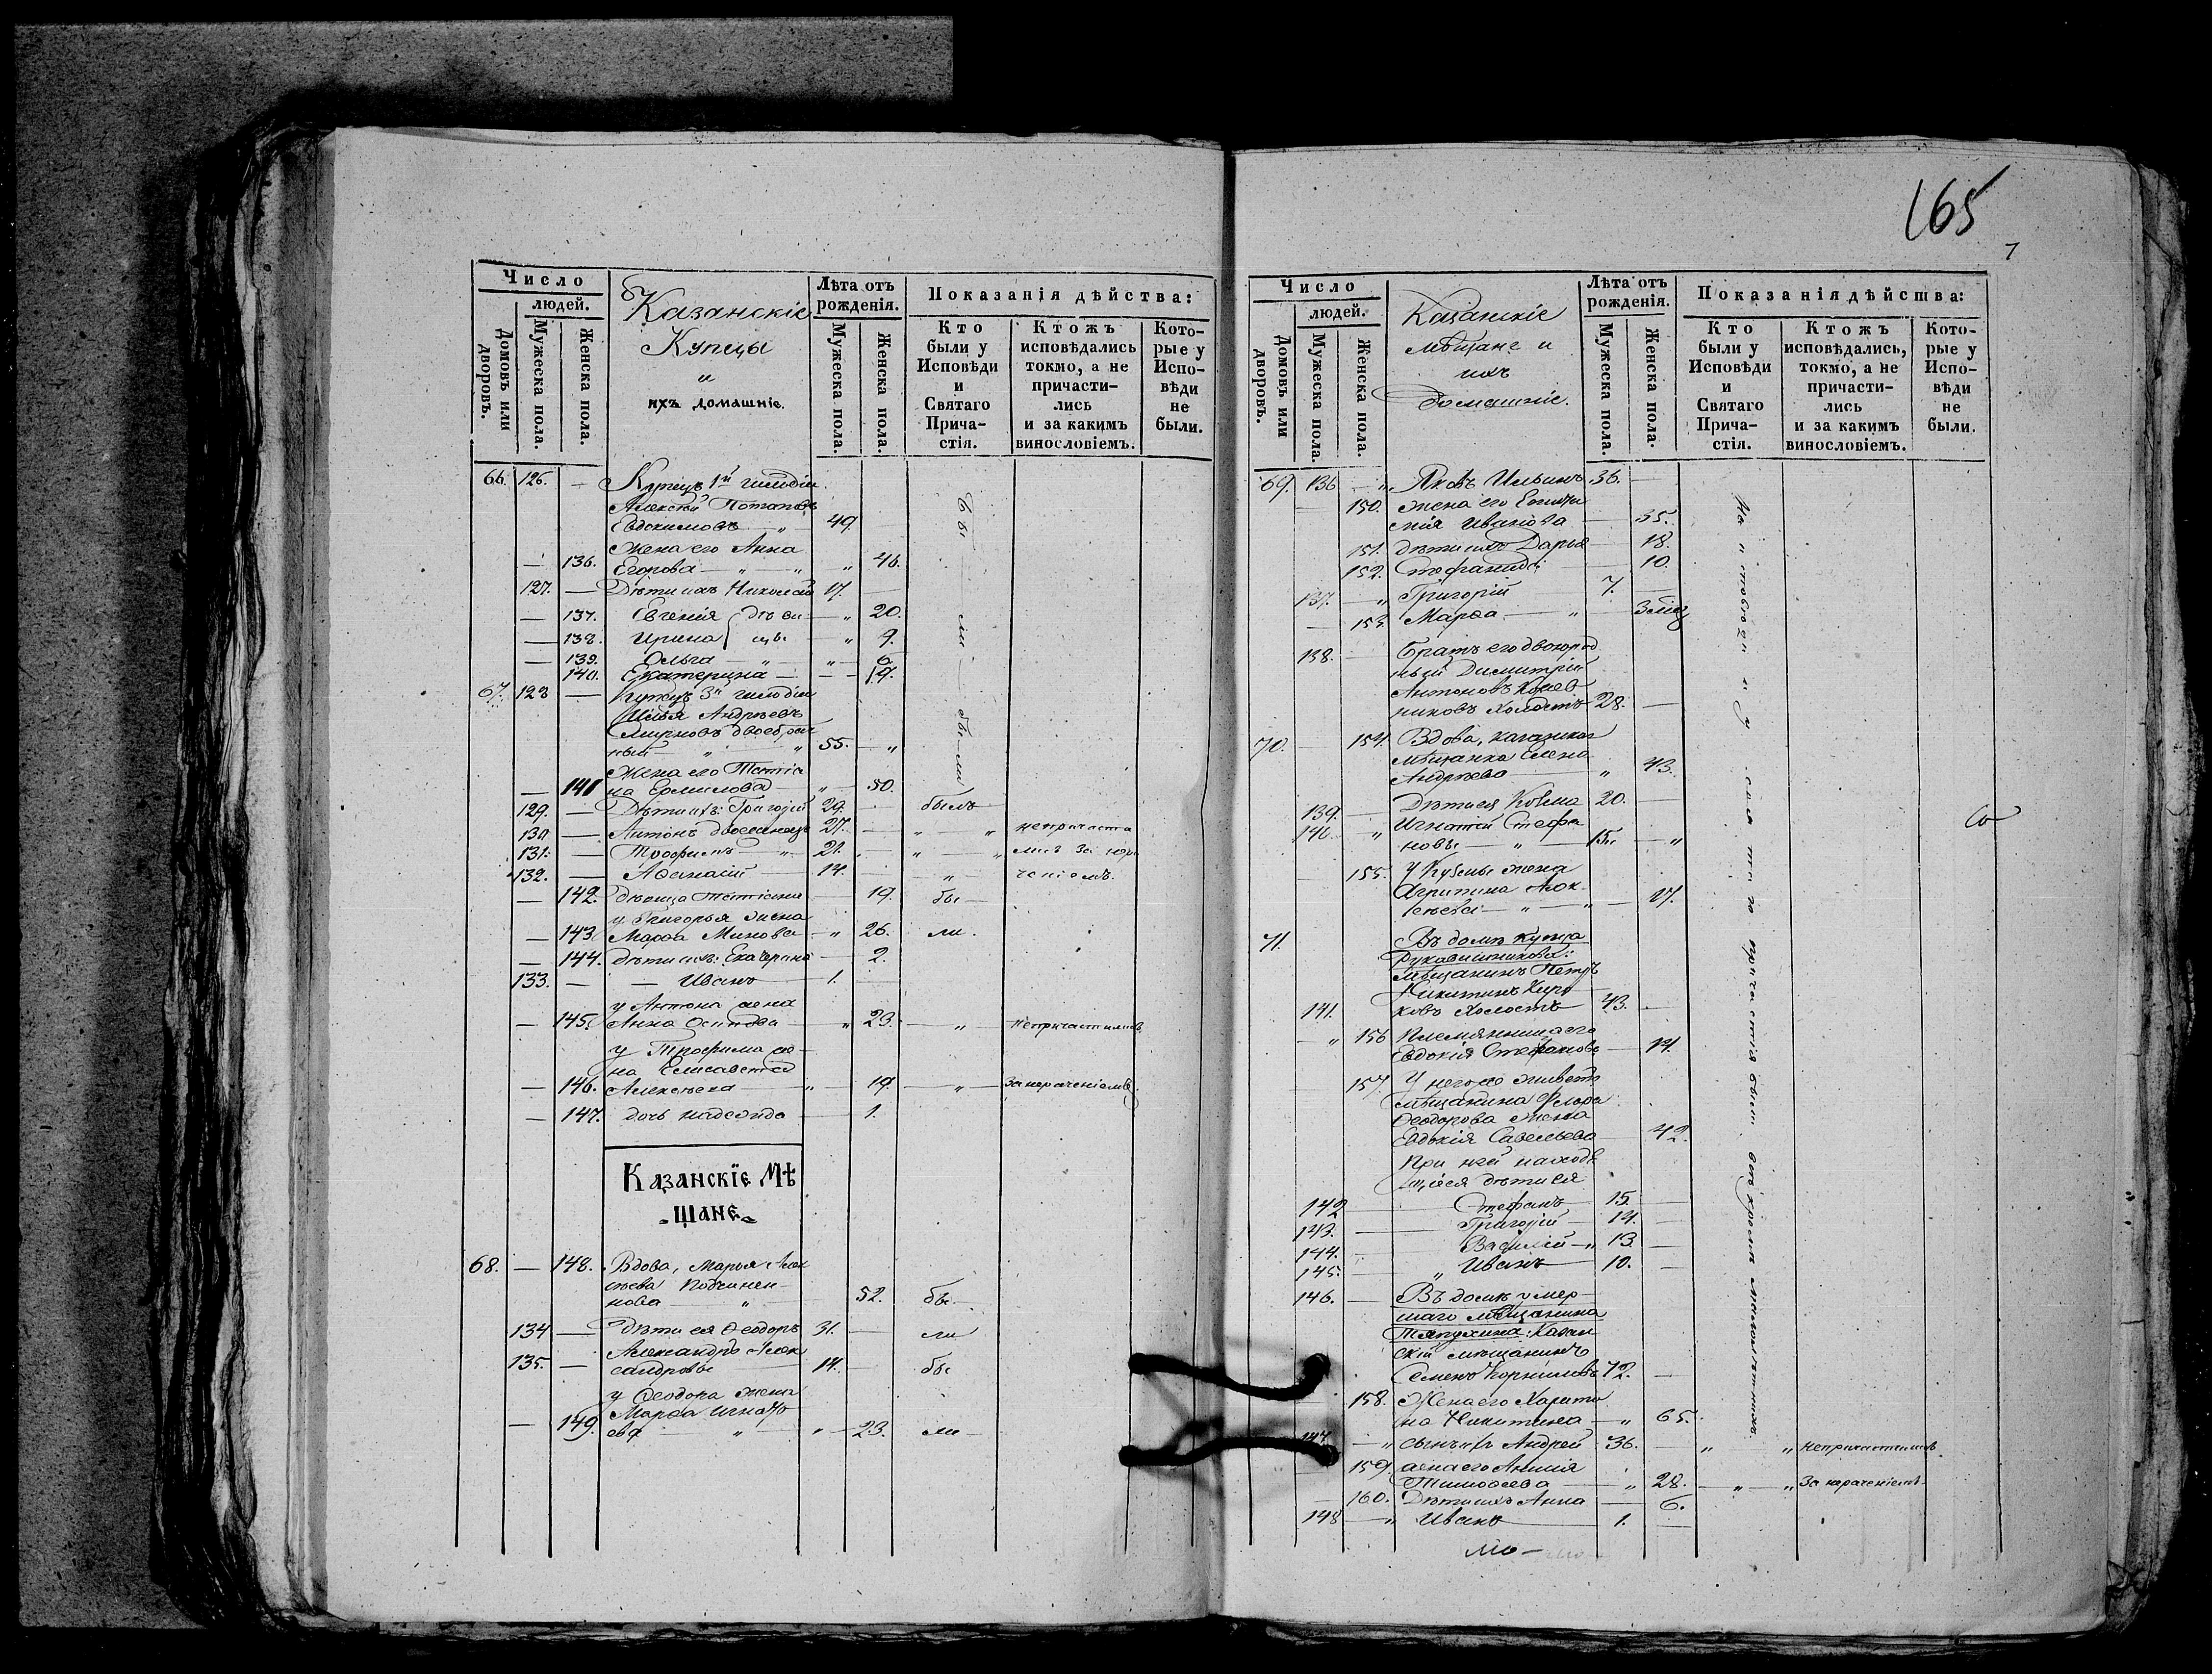 165
7
Число
людей.
Домовъ или дворовъ.
Мужеска пола.
Женска пола.
Казанскіе
Купецы
и
ихъ домашніе.
Лѣта отъ рожденія.
Мужеска пола.
Женска пола.
Показанія дѣйства:
Кто были у Исповѣди и Святаго Причастія.
Ктожъ исповѣдались токмо, а не причастились и за какимъ винословіемъ.
Которые у Исповѣди не были.
66. 126. — Купецъ 1й гильдіи
Алексѣй Потаповъ
Евдокимовъ — „ 49.
Жена его Анна
— 136. Егорова — „ — „ „ 46.
127. — Дѣти ихъ Николай 17. —
— 137. Евгенія дѣви — „ 20.
— 138. Ирина цы — „ 9.
— 139. Ольга — „ — „ — 6.
140. Екатерина — — — 19.
Бы — ли — бы — ли
67. 128 — Купецъ 3й гильдіи
Илья Андреевъ
Смирновъ двоебрач
ный — „ — „ 55. — „
Жена его Татіа
— 141 на Ермилова „ — 50.
129. — Дѣти ихъ: Григорій 29. — былъ
130. — Антонъ двоеженецъ 27. — „ — „ непричаста
131. — Трофимъ — „ 21. — „ — „ лись за нера
132. — Афанасій — 14. „ ченіемъ.
— 142. дѣвица Татіана — 19. бы —
у Григорья жена
— 143. Марѳа Минова — „ 26. ли.
— 144. дѣти ихъ: Екатерина — 2.
133. — — Иванъ — 1. —
у Антона жена
— 145. Анна Осипова — „ 23. — „ непричастилась
у Трофима же-
на Елисавета
— 146. Алексѣева — „ — 19. — „ — за нераченіемъ.
— 147. дочь — 1.
Казанскіе Мѣ
щане
68. — 148. Вдова, Марья Алек
сѣева
нова — „ 52. бы —
134 — дѣти ея Ѳеодоръ 31. — ли
Александръ Алек
135. — сандровы — 14. бы
у Ѳеодора жена
Марѳа Игнать
— 149. ева — „ „ — 23. ли —
Число
людей.
Домовъ или дворовъ.
Мужеска пола.
Женска пола.
Казанскіе
мѣщане и
ихъ
домашніе.
Лѣта отъ рожденія.
Мужеска пола.
Женска пола.
Показанія дѣйства:
Кто были у Исповѣди и Святаго Причастія.
Ктожъ исповѣдались, токмо, а не причастились и за какимъ винословіемъ.
Которые у Исповѣди не были.
69. 136 — „ Яковъ Ильинъ 36. —
— 150. жена его
Иванова — 35.
151. дѣти ихъ Дарья — 18.
152. Стефанида — 10.
137. — „ Григорій 7.
— 153. Марѳа — „ 3 мѣс
138. — Братъ его двоюрод
ный Димитрій
Антоновъ
никовъ холостъ 28. —
70. — 154. Вдова, казанская
мѣщанка Елена
Андреева — „ 43.
139. — Дѣти ея Козма 20. —
140. — „ Игнатій Стефа
новы — „ — 15. — „
— 155. у Кузьмы жена
Агрипина Алек-
сѣева — „ — „ — 17.
71. Въ домѣ купца
Рукавишникова:
мѣщанинъ Петръ
Никитинъ
141. ковъ холостъ 43. —
— „ 156 Племянница его
Евдокія Стефанова — 14.
157. У него же живетъ
мѣщанина Флора
Ѳеодорова жена
Евдокія Савельева — 42.
При ней находя
щіеся дѣти ея
142 — Стефанъ 15. —
143. — Григорій — 14. —
144. — Василій — „ 13. —
145. — „ Иванъ — 10. —
146. — Въ домѣ умер-
шаго мѣщанина
Тяпухина: Казан
скій мѣщанинъ
Семенъ Корниловъ 72. —
158. Жена его Харити
на Никитина — „ 65.
147. — „ сынъ ихъ Андрей 36. — „ „ непричастились
159 жена его
Тимоѳеева — „ 28. — „ — „ за нераченіемъ
— 160. Дѣти ихъ Анна — 6.
148 — „ Иванъ — 1. —
Святаго причастія были всѣ кромѣ малолѣтнихъ.